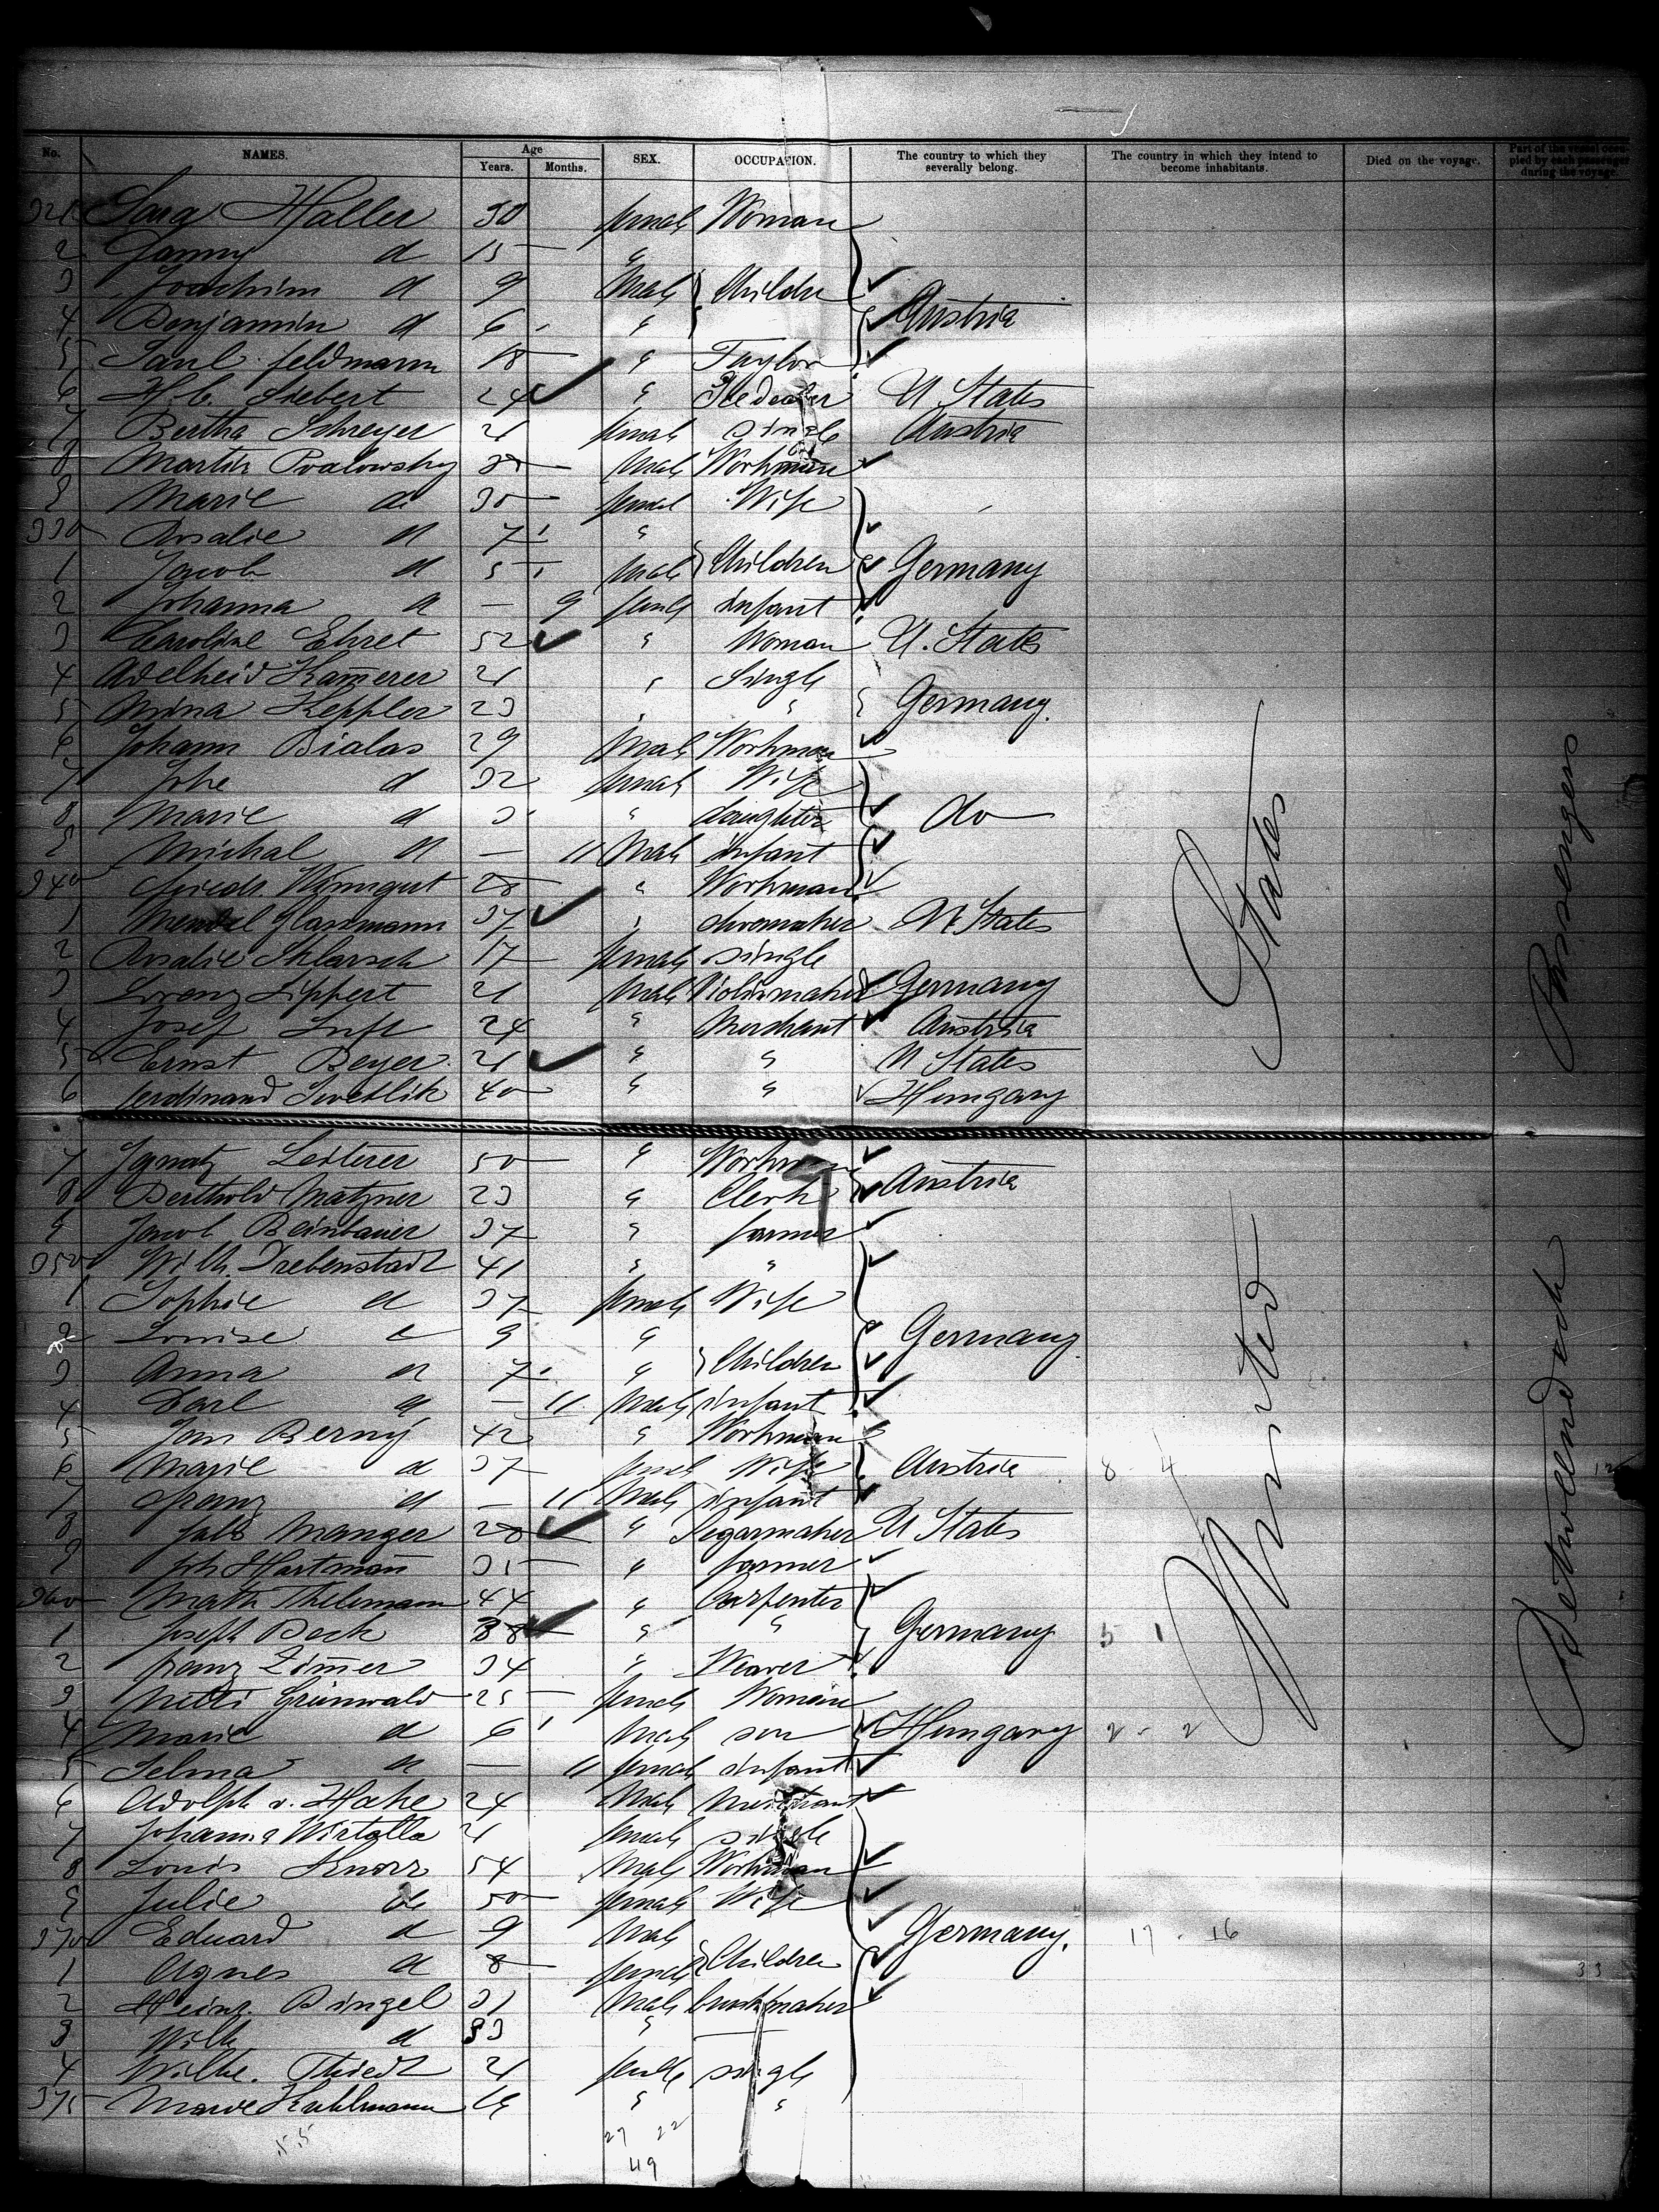 No. NAMES. Age Years. Months. SEX. OCCUPATION. The country to which they severally belong. The country in which they intend to become inhabitants. Died on the voyage. Part of the vessel occupied by each passenger during the voyage.
321 Sara Haller 30 female Woman
2 Fanny d 15 "
3 Joachim d 9 Male Childre
4 Benjamin d 6 " Austria
5 Saul feldmann 18 " Taylor
6 H. C. Siebert 24 " U States
7 Bertha Schreyer 21 female single Austria
8 Martin Male Workman
9 Marie d 30 female Wife
330 Rosalie d 7 "
1 Jacob d 5 Male Children Germany
2 Johanna d — 9 female infant
3 Caroline Ehret 52 " Woman U. States
4 Adelheid Kam̅erer 21 " Single
5 Mina Keppler 23 " " Germany.
6 Johann Bialas 29 Male Workman
7 d 32 female Wife
8 Marie d 3 " daughter do
9 Michal d — 11 Male infant
340 friedr. 28 " Workman
1 Mendel Glassmann 37 " shoemaker U States
2 Rosalie Sklarsch 17 female single
3 Lorenz Lippert 21 Male Violinmaker Germany
4 Josef Luft 24 " Merchant Austria
5 Ernst Beyer 21 " " U States
6 ferdinand Swetlik 40 " " Hungary
7 Ignatz Leiterer 50 " Workman
8 Berthold Matzner 23 " Clerk Austria
9 Jacob Beinbauer 37 " farmer
350 Wilh. Trebenstadt 41 " "
1 Sophie d 37 female Wife
2 Louise d 9 " Germany
3 Anna d 7 " Children
4 Carl d — 11 Male infant
5 Jan Berny 42 " Workman
6 Marie d 37 female Wife Austria 8 - 4
7 franz d — 11 Male infant
8 Manger 28 " Segarmaker U States
9 Joh Hartman̅ 35 " farmer
360 Math Thelemann 44 " Carpenter
1 Joseph Beck 38 " " Germany 5 1
2 franz Zim̅er 34 " Weaver
3 Netti Grünwald 25 female Woman
4 d 6 Male son Hungary 2 - 2
5 Selma d — 11 female infant
6 Adolph v. Hake 24 Male Merchant
7 Johanna Wistolla 21 female single
8 Louis Knorr 54 Male Workman
9 Julie d 50 female Wife
370 Eduard d 9 Male Germany. 17 - 16
1 Agnes d 8 female Children
2 Heinr. Bingel 31 Male brushmaker
3 Wilh d 33 " —
4 Wilhe. Thiedt 21 female single
375 Marie Kuhlmann 19 " "
55 27 22
49
United States
Betweendeck Passengers
12
33